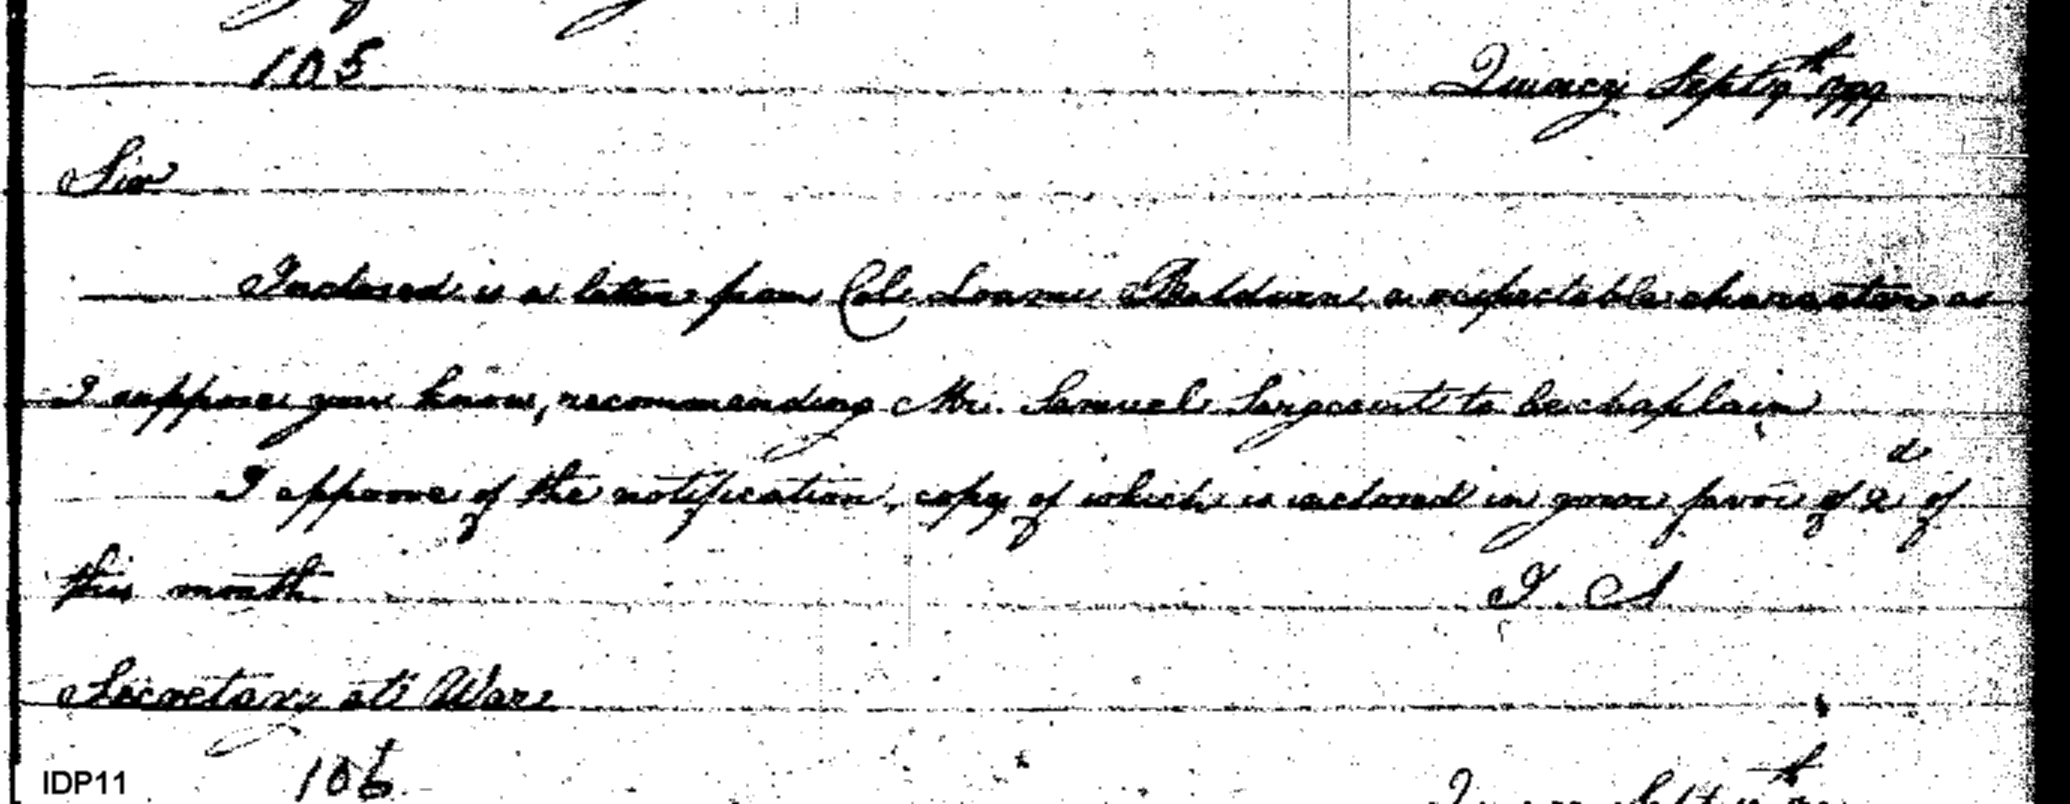 105
Quincy Sept 9th 1799
Sir
Inclosed is a letter from Col. Loammi Baldwin, a respectable character as
I suppose you know, recommending Mr. Samuel Sargeant to be chaplain
I approve of the notification, copy of which is inclosed in your favor of 2d of
this month
J. A
Secretary at War
106
IDP11